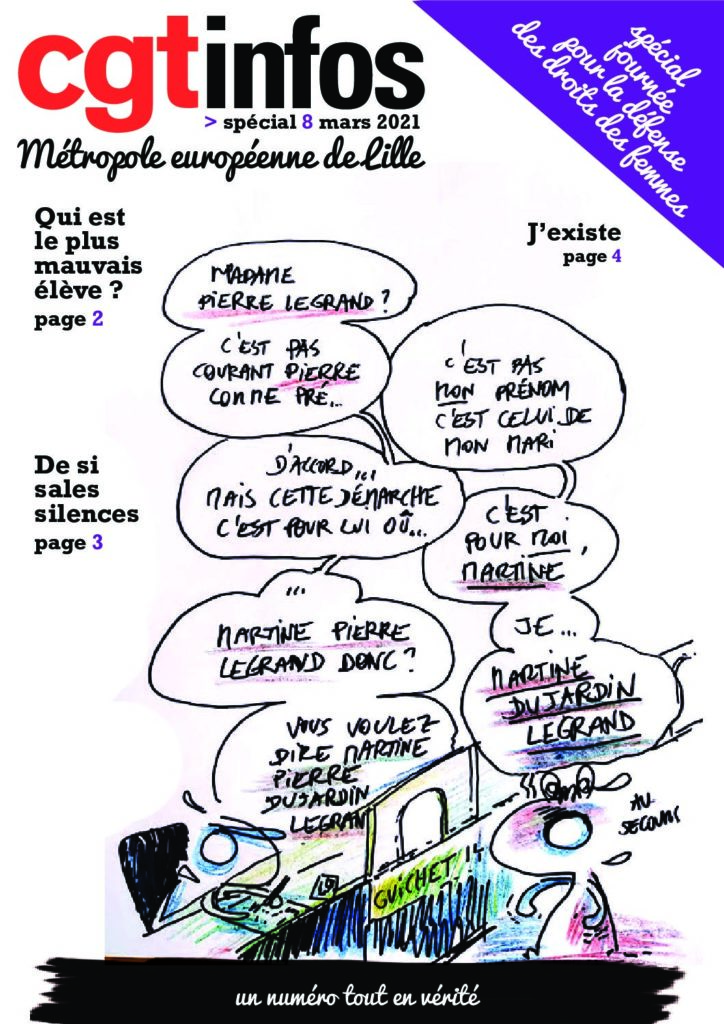 cgtinfos
> spécial 8 mars 2021
Métropole européenne de Lille
spécial
journée
pour la défense
des droits des femmes
Qui est
le plus
mauvais
élève ?
page 2
J'existe
page 4
De si
sales
silences
page 3
MADAME
PIERRE LEGRAND ?
C'EST PAS
COURANT PIERRE
COMME PRÉ...
C'EST PAS
MON PRÉNOM
C'EST CELUI DE
MON MARI
D'ACCORD...
MAIS CETTE DÉMARCHE
C'EST POUR LUI OÛ...
C'EST
POUR MOI,
MARTINE
...
MARTINE PIERRE
LEGRAND DONC ?
JE...
MARTINE
DUJARDIN
LEGRAND
VOUS VOULEZ
DIRE MARTINE
PIERRE
DUJARDIN
LEGRAN
AU
SECOURS
GUICHET
un numéro tout en vérité